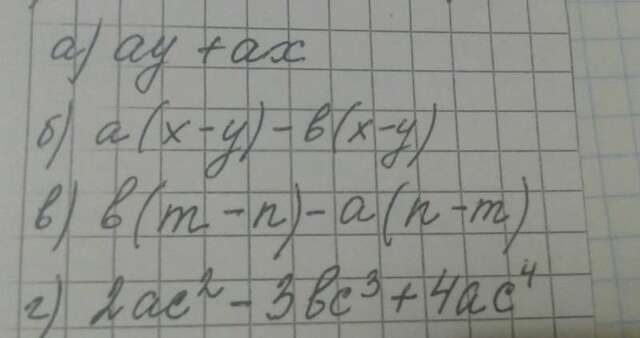 а) ay + ax
б) a(x-y)-b(x-y)
в) b(m-n)-a(n-m)
г) 2ac² - 3bc³ + 4ac⁴